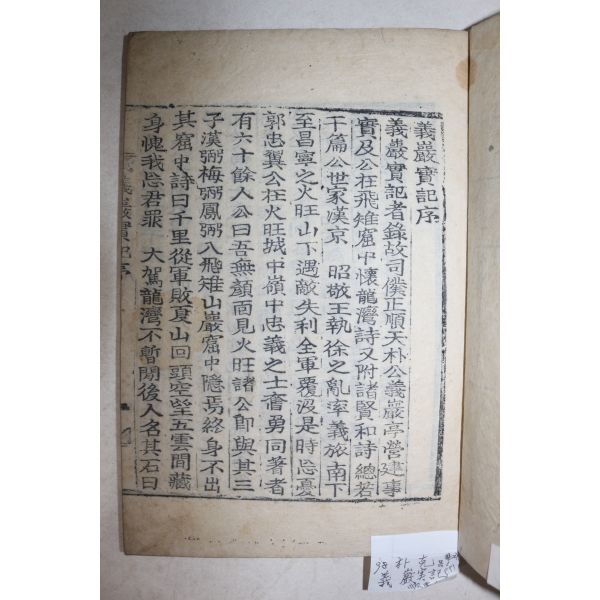 義巖實記序
義巖實記者錄故司僕正順天朴公義巖亭營建事
實及公在飛雉窟中懷龍灣詩又附諸賢和詩總若
干篇公世家漢京 昭敬王執徐之亂率義旅南下
至昌寧之火旺山下遇敵失利全軍覆沒是時忘憂
郭忠翼公在火旺城中嶺中忠義之士奮勇同著者
有六十餘人公曰吾無顔面見火旺諸公卽與其三
子漢弼梅弼鳳弼入飛雉山巖窟中隱焉終身不出
其窟中詩曰千里從軍敗夏山回頭空望五雲間藏
身愧我忘君罪 大駕龍灣不暫閒後人名其石曰
義巖實記序
朴
義巖实記